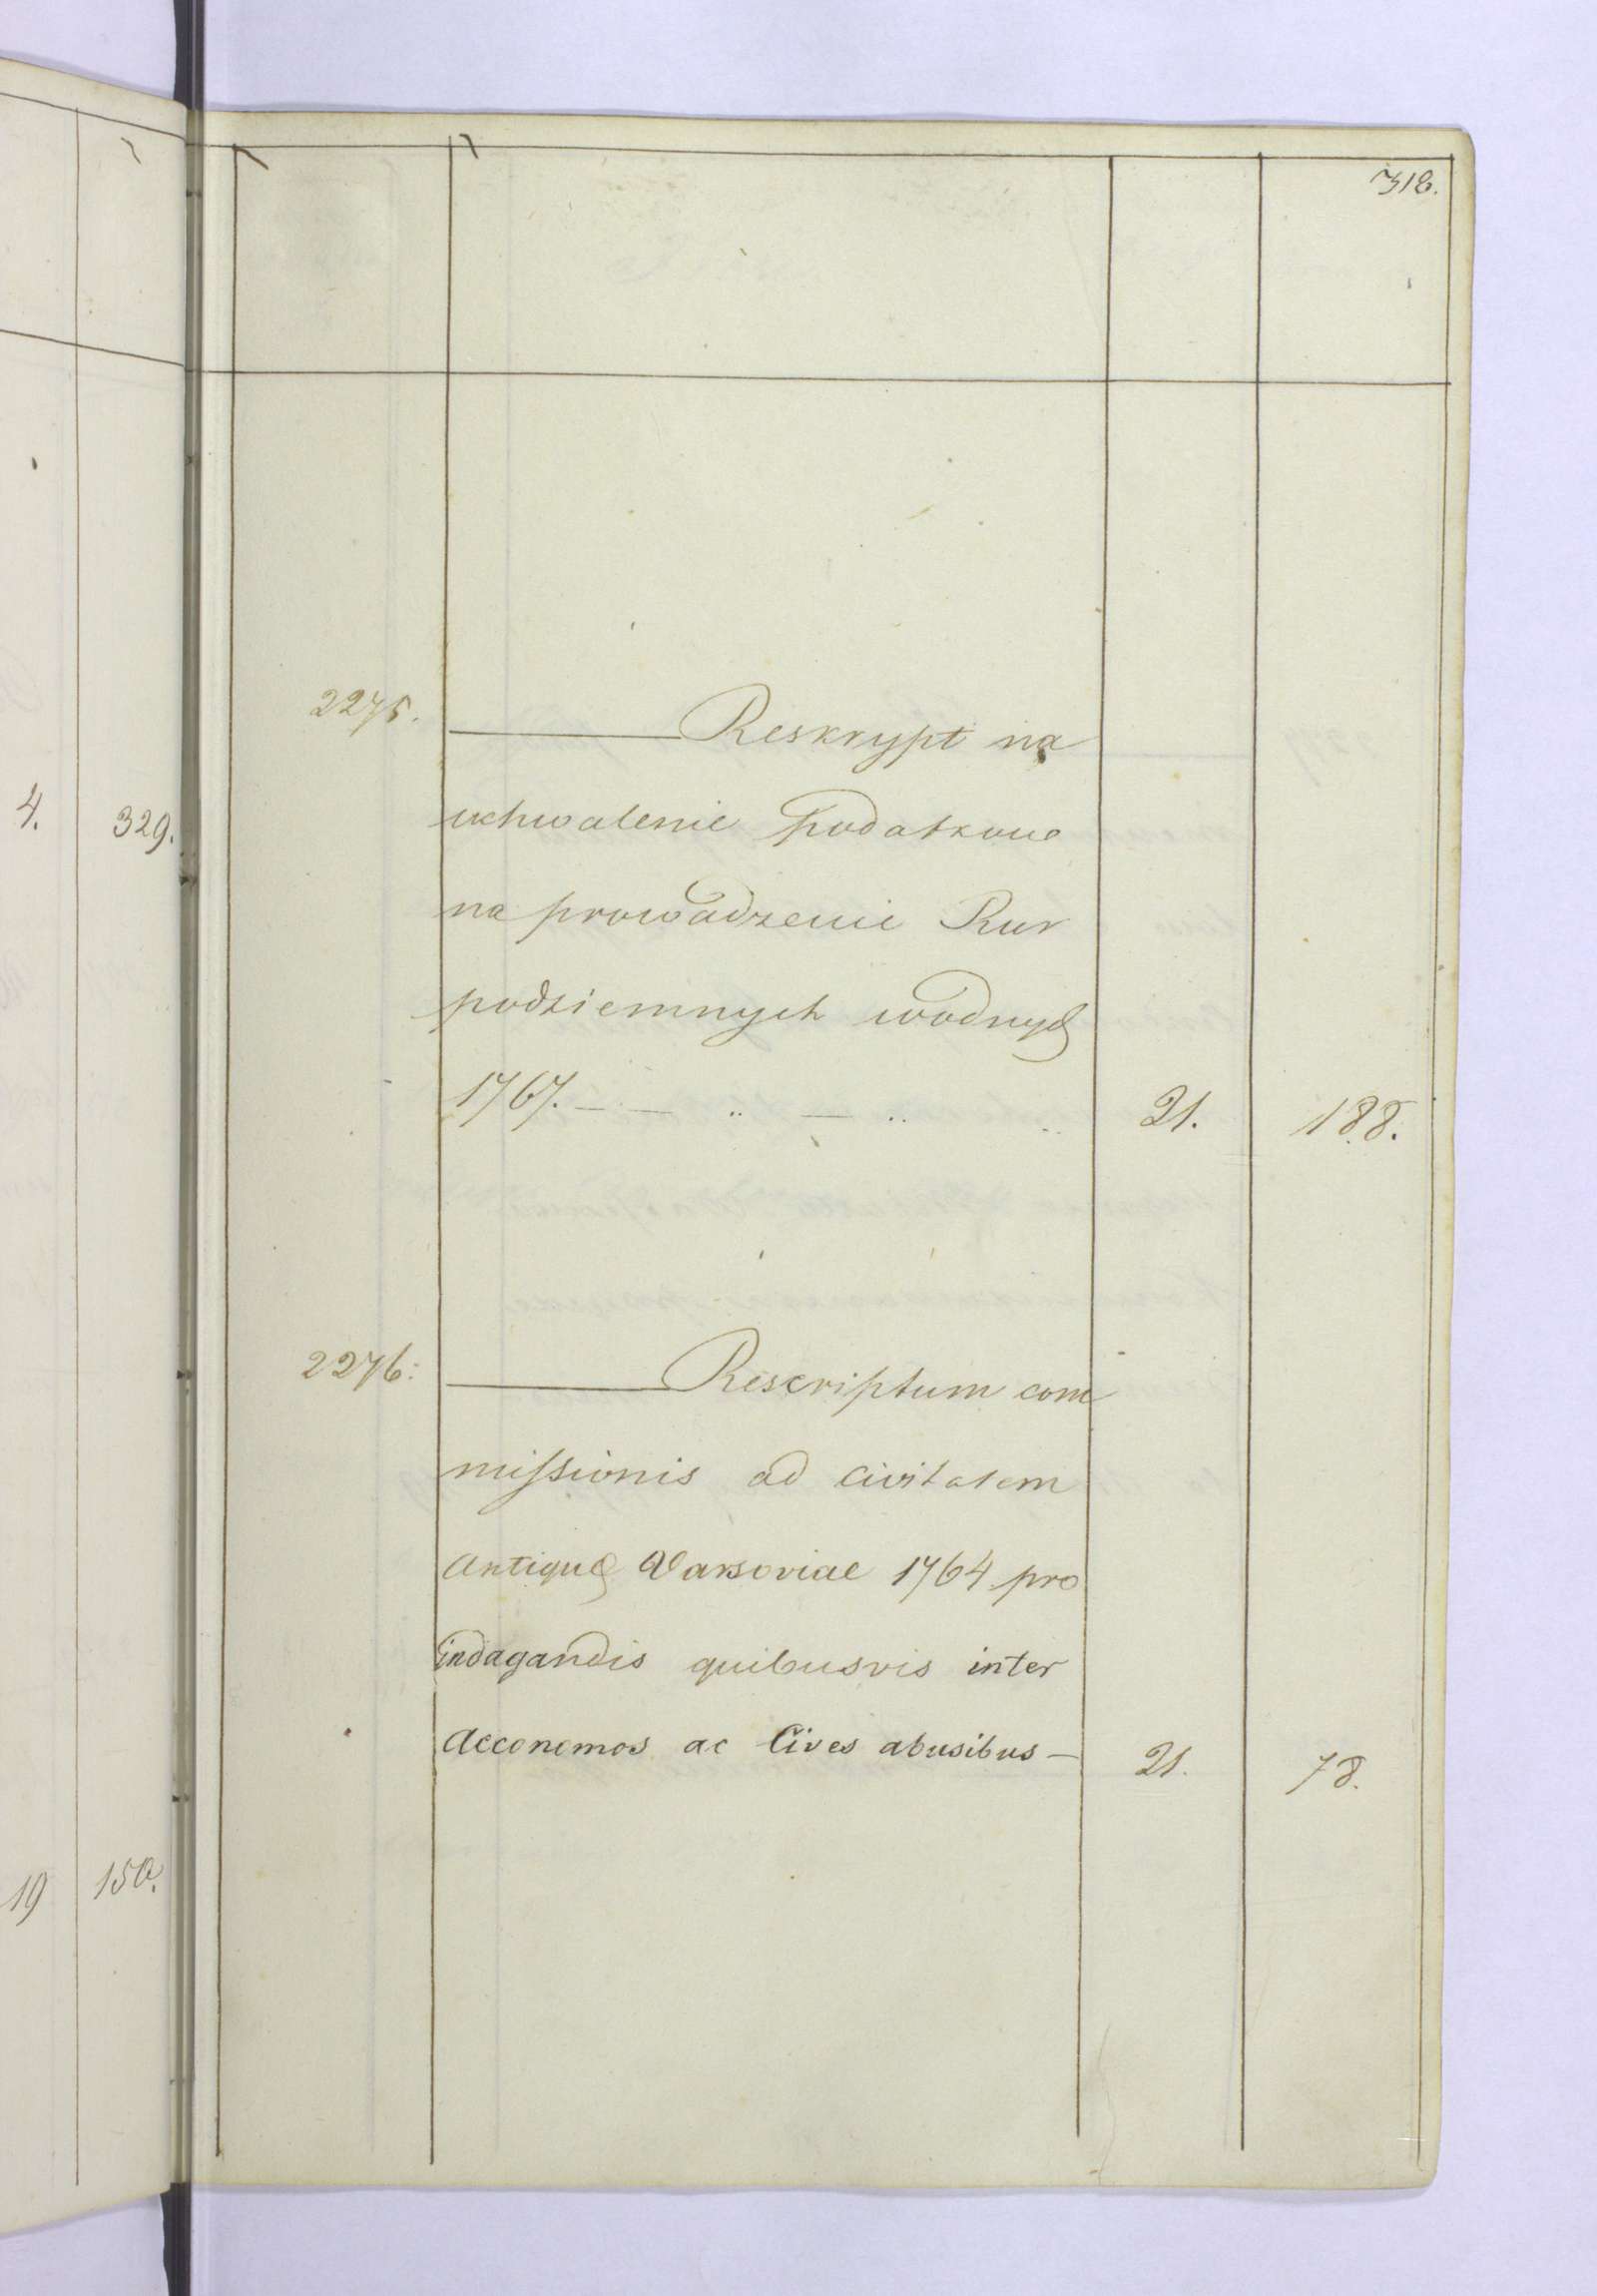 318.
4. 329.
2275. Reskrypt na
uchwalenie Podatkowe
na prowadzenie Rur
podziemnych wodnych
1767. — — „ — „ „ 21. 188.
2276. Rescriptum com
missionis ad Civitatem
Antique Varsoviae 1764 pro
indagandis quibusvis inter
Aeconomos ac Cives abusibus — 21. 78.
19 150.